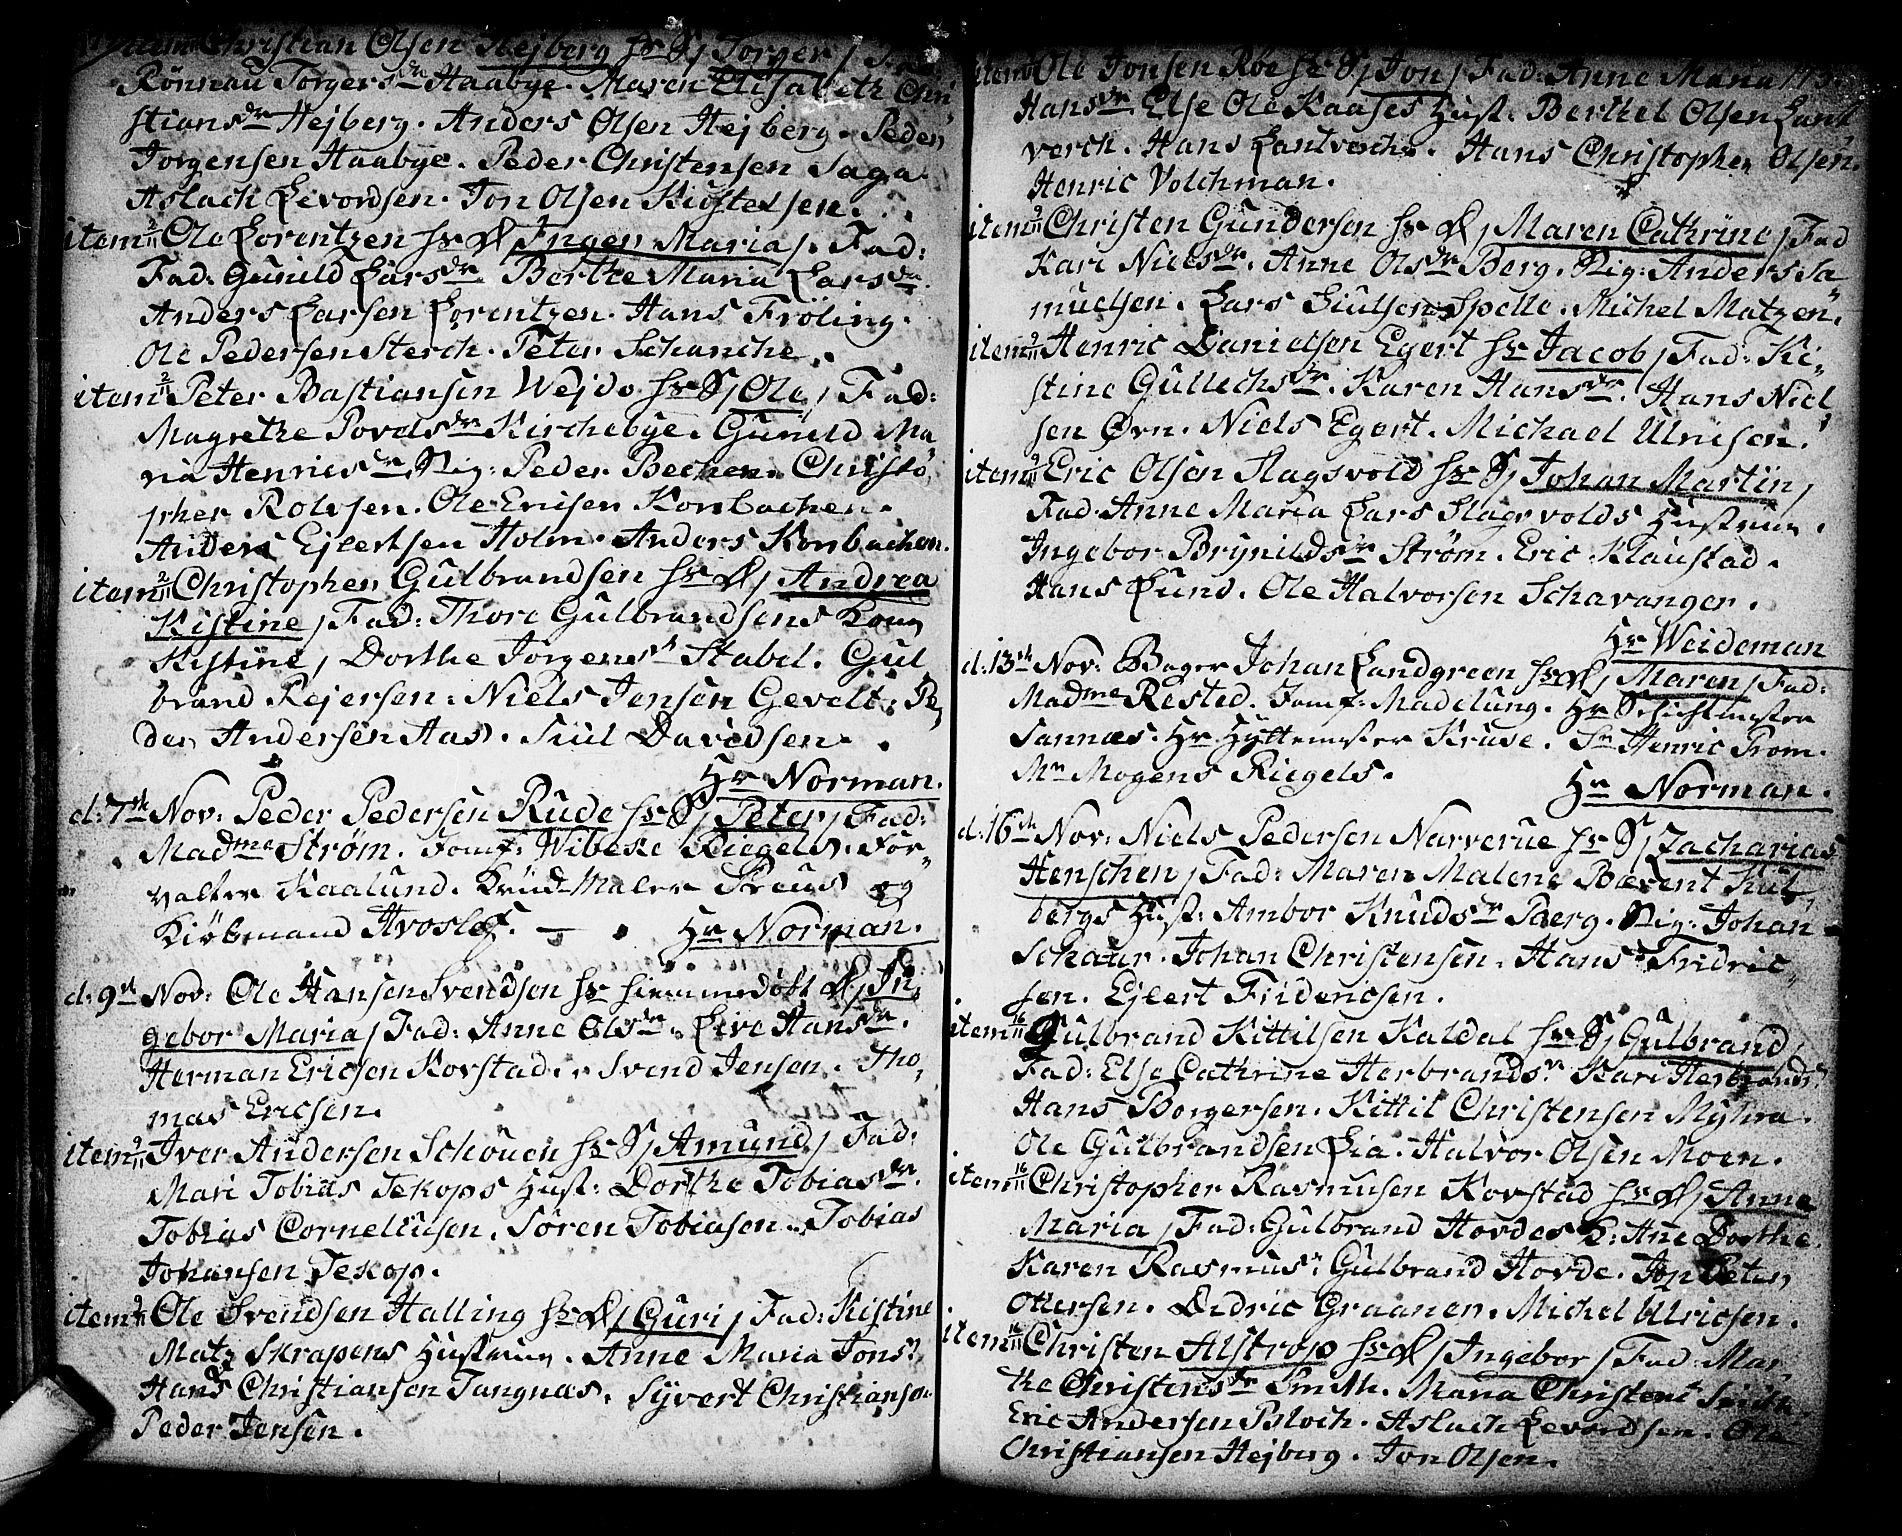 item Christian Olsen Hejberg hr S, Torger, Fad:
Rönnau Torgers dr Haabye. Maren Elisabeth Chri
stians dr Hejberg. Anders Olsen Hejberg. Peder
Jorgensen Haabye. Peder Christensen Saga
Aslach Levordsen. Jon Olsen Kistelsen.
item 2/11 Ole Lorentzen hr D, Inger Maria, Fad:
Fad: Gunild Lars dr Berthe Maria Lars dr
Anders Larsen Lorentzen. Hans Fröling.
Ole Pedersen Sterch. Peter Schanche.
item 2/11 Peter Bastiansen Wejdo hr S, Ole, Fad:
Magrethe Povels dr Kirchebye. Gunild Ma
ria Henrics dr Pig: Peder Becher. Christo
pher Rolvsen. Ole Ericsen Korsbachen.
Anders Ejlertsen Holm. Anders Korsbachen.
item 2/11 Christopher Gulbrandsen hr D, Andrea
Kistine, Fad: Thore Gulbrandsens Kone
Kistine, Dorthe Jorgens dr Stabel. Gul
brand Rejersen: Niels Jensen Gevelt: Pe
der Andersen Aas. Siul Davidsen.
Hr Norman.
d: 7de Nov: Peder Pedersen Rude hr S, Peter, Fad:
Madme Strøm. Jomf: Wibeke Riegels. For
valter Kaalund. Krud-Maler Preus og
Kiöbmand Hvoslef. — Hr Norman.
d: 9de Nov: Ole Hansen Svendsen hr hiemmedöbt D, In
gebor Maria, Fad: Anne Ols dr. Live Hans dr.
Herman Ericsen Korstad. Svend Jensen. Tho
mas Ericsen.
item 9/11 Iver Andersen Schouen hr S, Amund, Fad:
Mari Tobias Tekops Hust: Dorthe Tobias dr.
Tobias Corneliusen. Sören Tobiasen. Tobias
Johansen Tekop.
item 9/11 Ole Svendsen Halling hr D, Guri, Fad: Kistine
Matz Skrapens Hustrue. Anne Maria Jons dr
Hans Christiansen Tangnæs. Syvert Christiansen
Peder Jensen.
item Ole Jonsen Röe hr S, Jon, Fad: Anne Maria
Hans dr. Else Ole Kaases Hust. Berthel Olsen Lant
verch. Hans Lantverch. Hans Christopher Olsen.
Henric Volchman.
item 9/11 Christen Gundersen hr D, Maren Cathrine, Fad
Kari Niels dr. Anne Ols dr Berg. Pig: Anders Sa
muelsen. Lars Siulsen Spelle. Michel Matzen.
item 9/11 Henric Danielsen Egert hr Jacob, Fad: Ki
stine Gullechs dr. Karen Hans dr. Hans Niel
sen Ørn. Niels Egert. Michael Ulrisen.
item 9/11 Eric Olsen Slagsvold hr S, Johan Martin,
Fad. Anne Maria Lars Slagsvolds Hustrue.
Ingebor Brynilds dr Strøm. Eric Klaustad.
Hans Lund. Ole Halvorsen Schavanger.
Hr Weideman
d: 13de Nov: Bager Johan Landgreen hr D, Maren, Fad:
Madme Rested. Jomf: Madelung. Hr Schichtmester
Sannæs. Hr Hyttemester Kruse. Sr Henric Prom.
Mr Mogens Riegels.
Hr Norman.
d: 16de Nov: Niels Pedersen Narverue hr S, Zacharias
Henschen, Fad: Maren Malene Bærent Kul
bergs Hust: Ambor Knuds dr Berg. Pig: Johan
Schaur. Johan Christensen. Hans Fridric
sen. Ejlert Fridericsen.
item 16/11 Gulbrand Kittilsen Kaldal hr S, Gulbrand,
Fad: Else Cathrine Herbrands dr Kari Herbrands
Hans Borgersen. Kittil Christensen Myhra.
Ole Gulbrandsen Lia. Halvor Olsen Moen.
item 16/11 Christopher Rasmusen Korstad hr D, Anne
Maria, Fad: Gulbrand Hordes K: Ane Dorthe.
Karen Rasmus: Gulbrand Horde. Jon Peter
Ottersen. Didric Graaner. Michel Ulricsen.
item 16/11 Christen Alstrop hr D, Ingebor, Fad: Mar
the Christens dr Smith. Maria Christens Smith
Eric Andersen Bloch. Aslach Levordsen. Ole
Christiansen Hejberg. Jon Olsen.